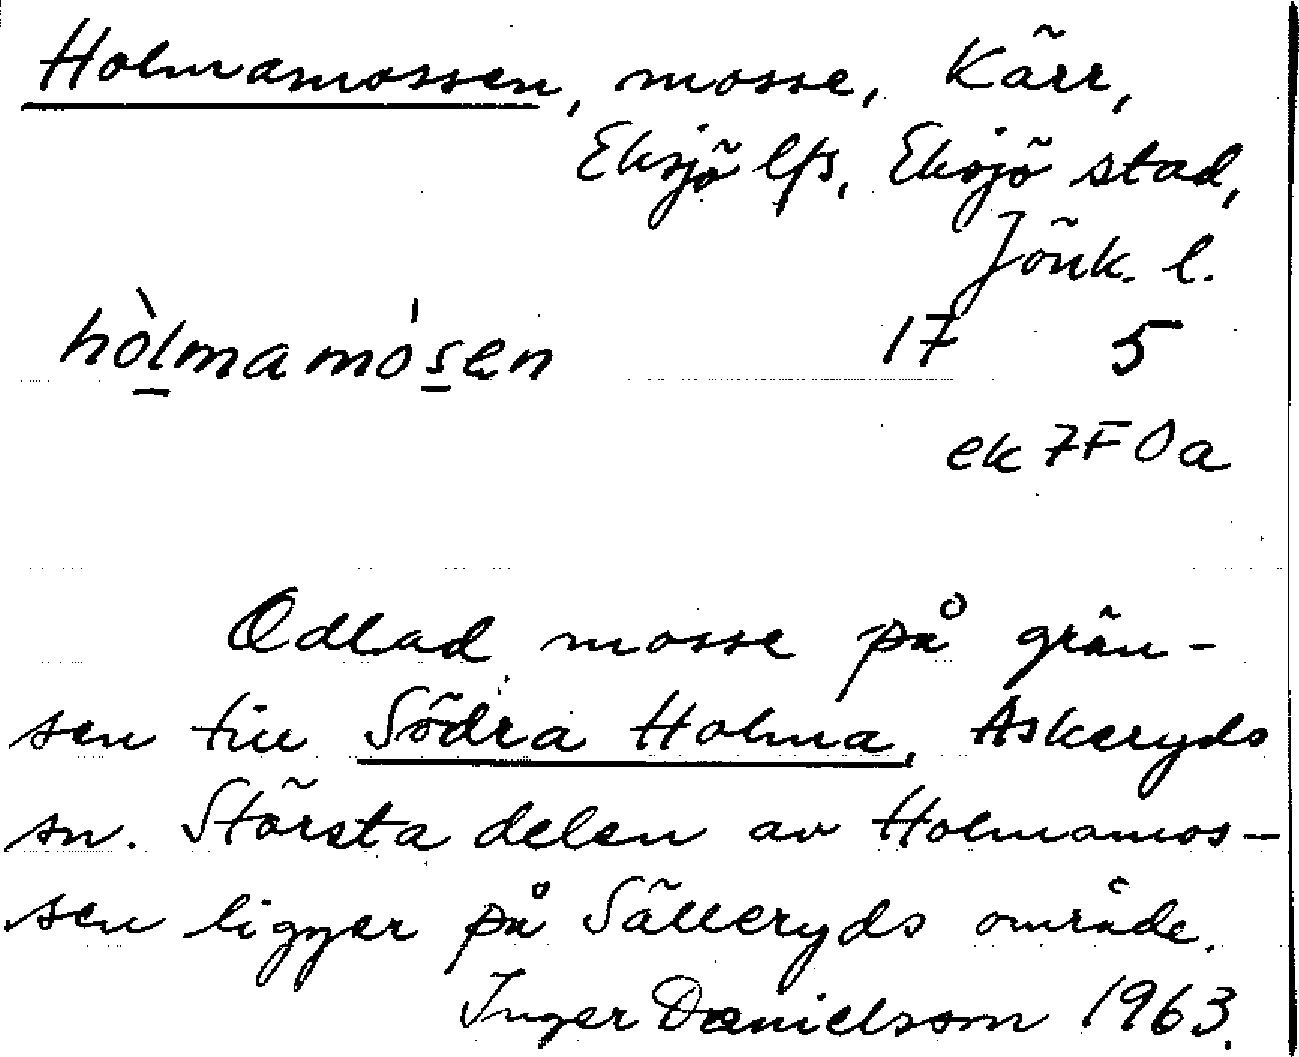 Holmamossen, mosse, Kärr,
Eksjö lfs, Eksjö stad,
Jönk. l.
hòlmamósen 17 5
ek 7F 0a
Odlad mosse på grän-
sen till Södra Holma, Askeryds
sn. Största delen av Holmamos-
sen ligger på Sälleryds område.
Inger Danielsson 1963.